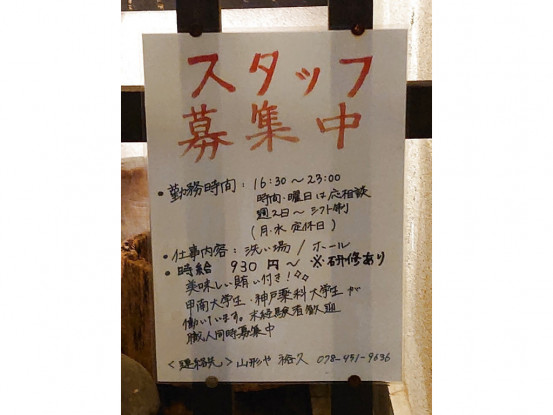 スタッフ
募集中
・勤務時間：16:30〜23:00
時間・曜日は応相談
週2日〜シフト制
(月・水 定休日)
・仕事内容：洗い場/ホール
・時給 930円〜 ※研修あり
美味しい賄い付き！
甲南大学生・神戸薬科大学生が
働いています。未経験者歓迎
職人同時募集中
<連絡先>山形や 裕久 078-451-9636